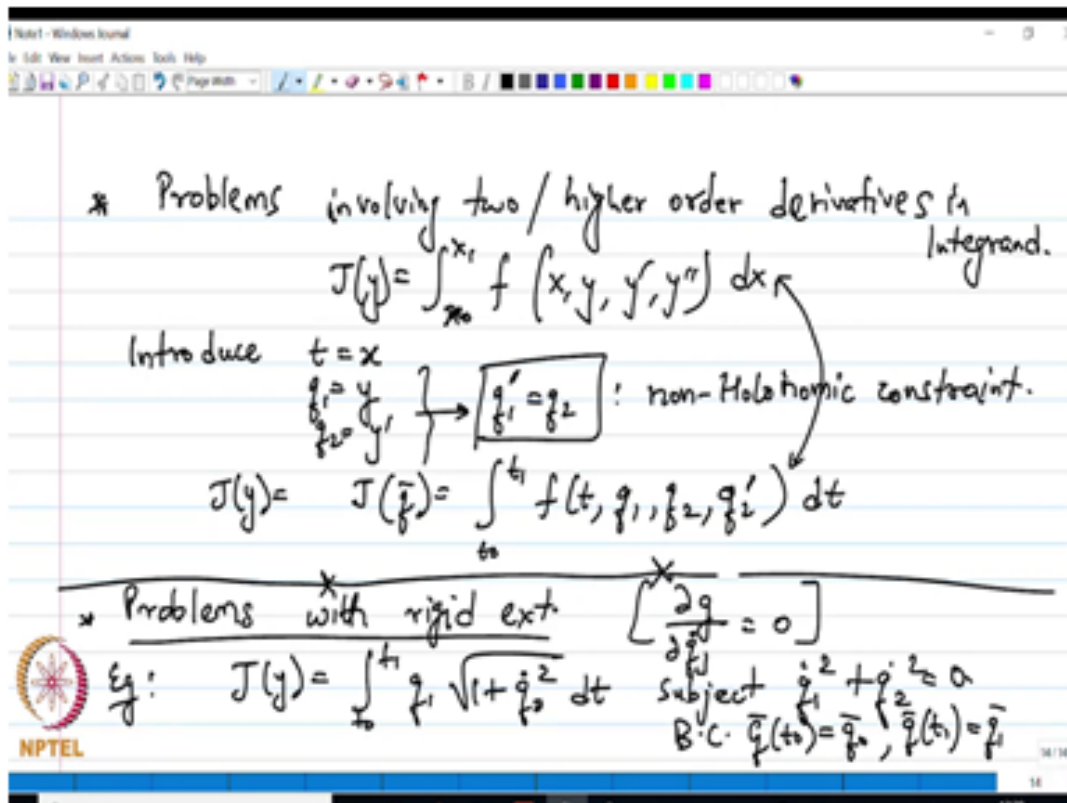 Note1 - Windows Journal
Edit View Insert Actions Tools Help
Page Width
* Problems involving two / higher order derivatives in
Integrand.
J(y) = ∫_{x₀}^{x₁} f (x, y, y', y'') dx
Introduce t = x
q₁ = y
q₂ = y' } → q₁' = q₂ : non-Holonomic constraint.
J(y) = J(q̄) = ∫_{t₀}^{t₁} f(t, q₁, q₂, q₂') dt
* Problems with rigid ext. [∂g/∂q̇ⱼ = 0]
Eg: J(y) = ∫_{t₀}^{t₁} q₁ √(1 + q̇₂²) dt subject q̇₁² + q̇₂² = 0
B.C. q̄(t₀) = q̄₀, q̄(t₁) = q̄₁
NPTEL
14/14
14